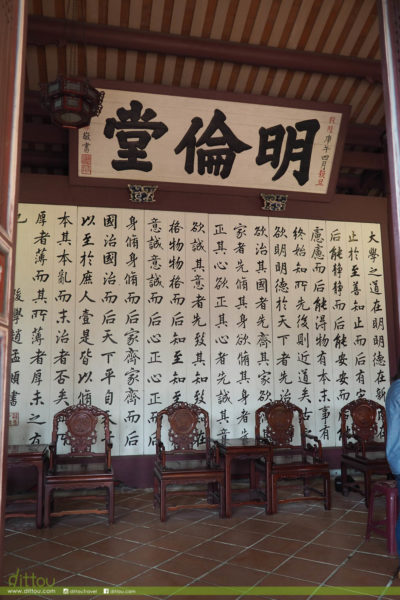 明倫堂
敬書
大學之道在明明德在新
止於至善知止而后有
后能靜靜而后能安安而
慮慮而后能得物有本末事有
終始知所先後則近道矣古
欲明明德於天下者先治
欲治其國者先齊其家欲
家者先脩其身欲脩其身
正其心欲正其心者先誠其意
欲誠其意者先致其知
格物物格而后知至知至
意誠意誠而后心正心正而
身脩身脩而后家齊家齊而后
國治國治而后天下平自天
以至於庶人壹是皆以脩
本其本亂而末治者否矣
厚者薄而其所薄者厚未之有
也 後學趙孟頫書
dittou
www.dittou.com
dittoutravel
dittou.com